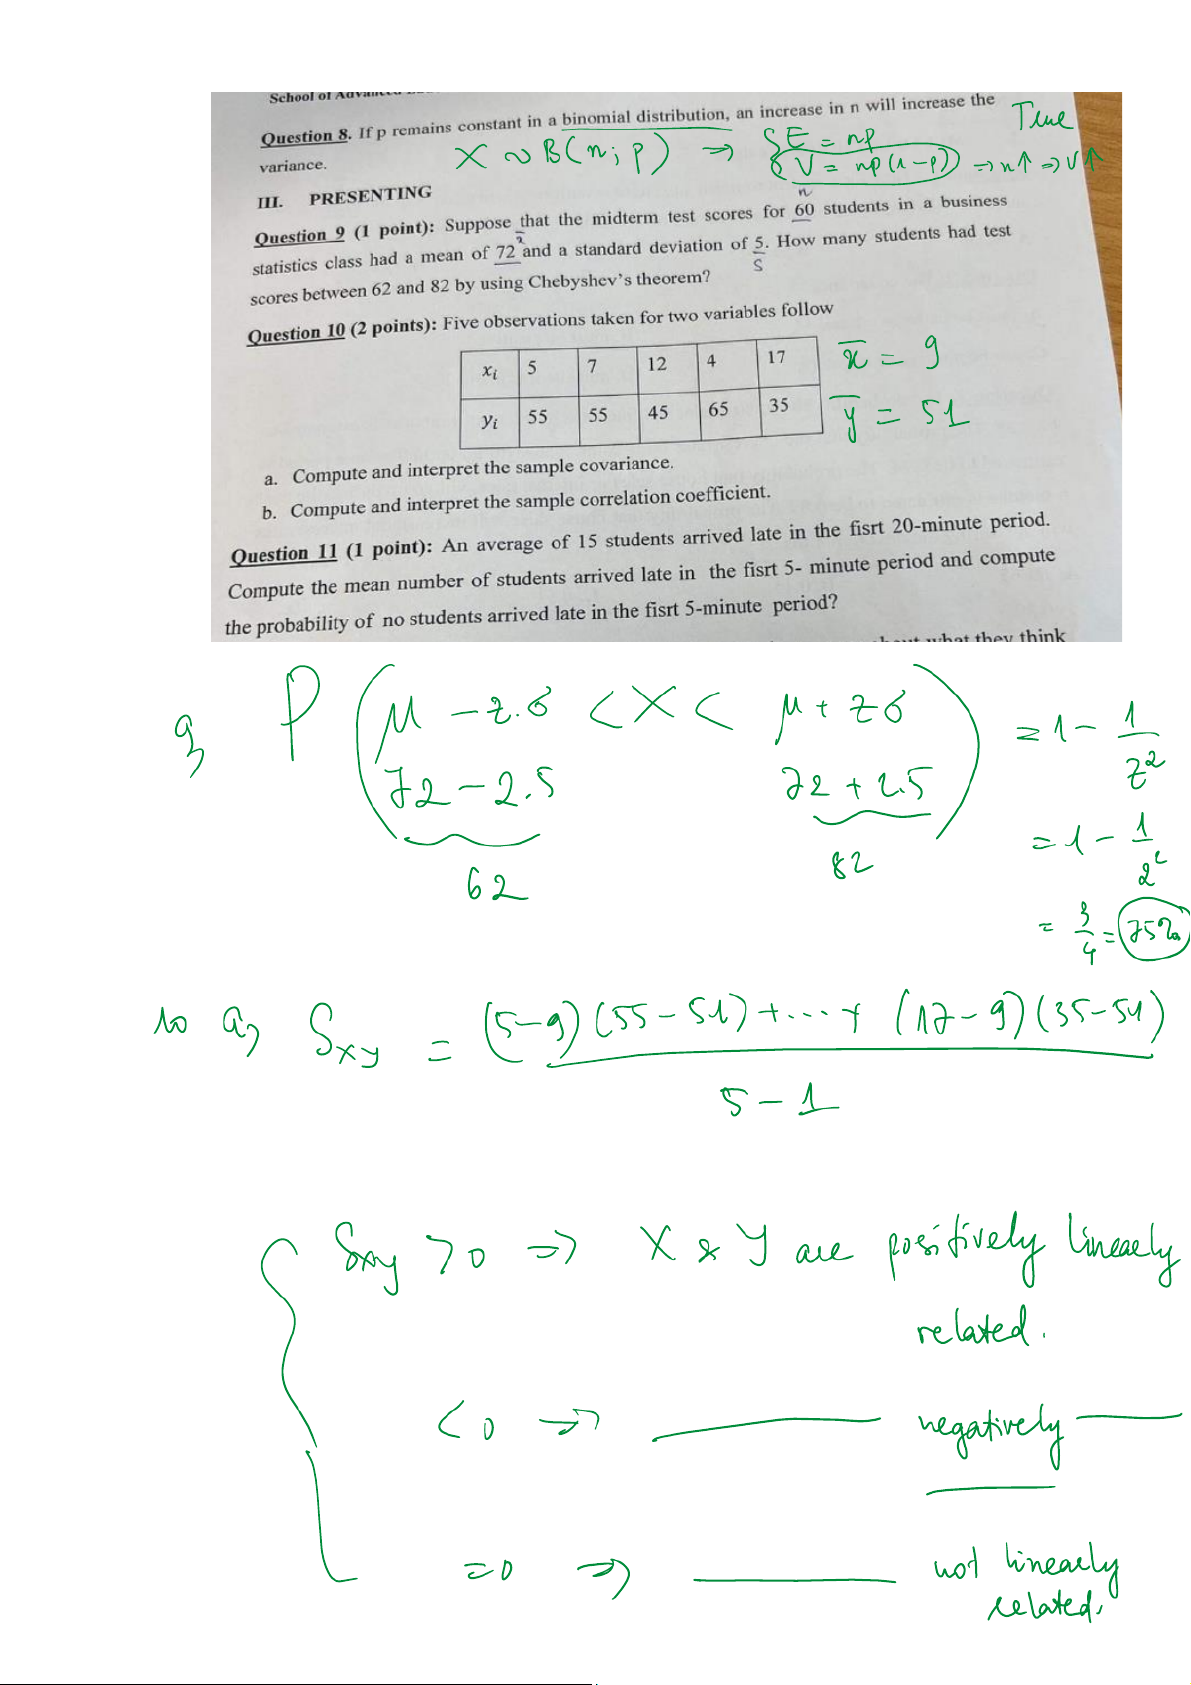 School of Adva
Question 8. If p remains constant in a binomial distribution, an increase in n will increase the
variance.
True
X ~ B(n; p) => { E = np
V = np(1-p) → n↑ => V↑
III. PRESENTING
n
Question 9 (1 point): Suppose that the midterm test scores for 60 students in a business
x̄
statistics class had a mean of 72 and a standard deviation of 5. How many students had test
S
scores between 62 and 82 by using Chebyshev's theorem?
Question 10 (2 points): Five observations taken for two variables follow
xi 5 7 12 4 17
x̄ = 9
yi 55 55 45 65 35
ȳ = 51
a. Compute and interpret the sample covariance.
b. Compute and interpret the sample correlation coefficient.
Question 11 (1 point): An average of 15 students arrived late in the fisrt 20-minute period.
Compute the mean number of students arrived late in the fisrt 5- minute period and compute
the probability of no students arrived late in the fisrt 5-minute period?
what they think
9, P ( μ - z.σ < X < μ + zσ ) = 1 - 1/z²
72 - 2.5 72 + 2.5
= 1 - 1/2²
62 82
= 3/4 = 75%
10 a, Sxy = (5-9)(55-51) + .... + (17-9)(35-51)
5 - 1
Sxy > 0 => X & Y are positively linearly
related.
< 0 => negatively
= 0 => not linearly
related.